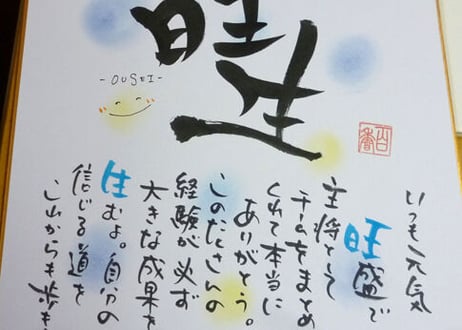 旺生
-OUSEI-
いつも元気
旺盛で
主将として
チームをまとめ
くれて本当に
ありがとう。
このたくさんの
経験が必ず
大きな成果を
生むよ。自分の
信じる道を
これからも歩き